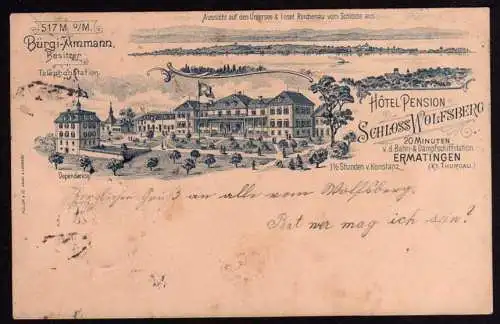 Aussicht auf den Untersee & Insel Reichenau vom Schlosse aus.
517 M. ü/M.
Bürgi-Ammann,
Besitzer
Telephonstation.
HÔTEL PENSION
SCHLOSS WOLFSBERG
20 MINUTEN
v. d. Bahn- & Dampfschiffstation
ERMATINGEN
1½ Stunden v. Konstanz
(Kt. THURGAU.)
Dependence
Herzlichen Gruß an alle vom Wolfsberg.
Rat wer mag ich sein?